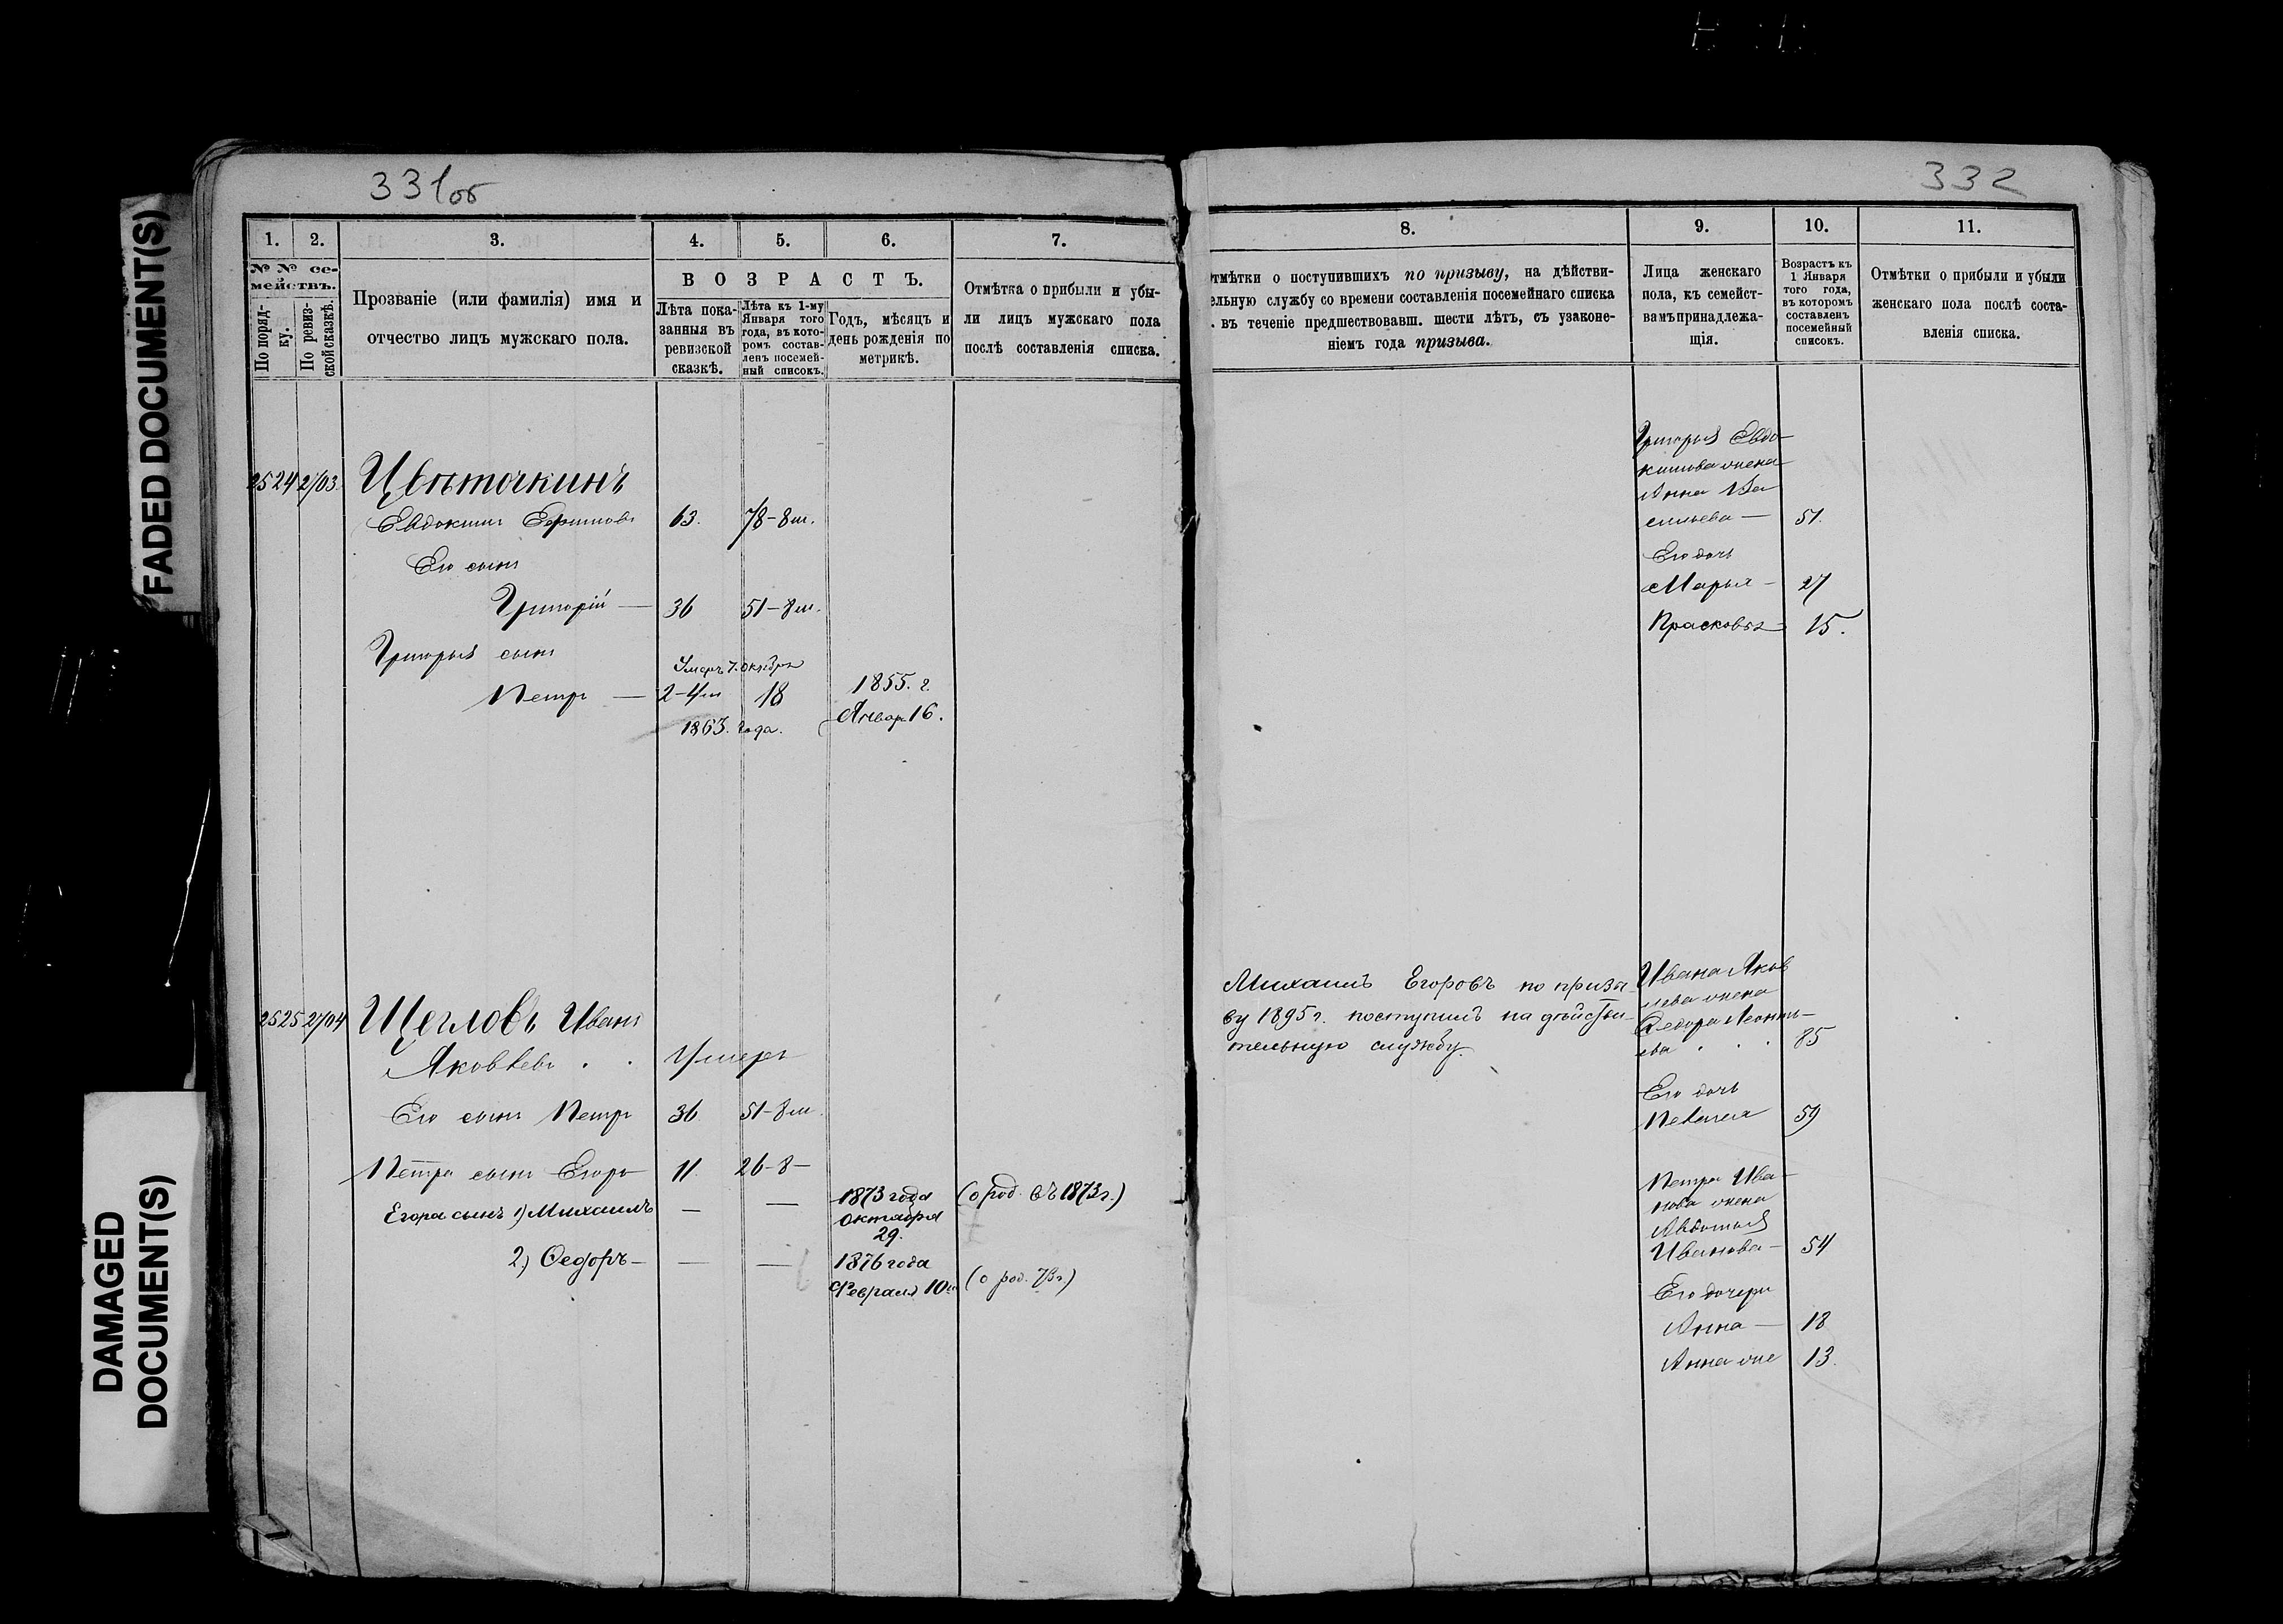 FADED DOCUMENT(S)
DAMAGED
DOCUMENT(S)
331об
1.
2.
3.
4.
5.
6.
7.
№ № се-
мействъ.
По поряд-
ку.
По ревиз-
ской сказкѣ.
Прозваніе (или фамилія) имя и
отчество лицъ мужскаго пола.
ВОЗРАСТЪ.
Лѣта пока-
занныя въ
ревизской
сказкѣ.
Лѣта къ 1-му
Января того
года, въ кото-
ромъ состав-
ленъ посемей-
ный списокъ.
Годъ, мѣсяцъ и
день рожденія по
метрикѣ.
Отмѣтка о прибыли и убы-
ли лицъ мужскаго пола
послѣ составленія списка.
2524 2103. Цвѣточкинъ
Евдокимъ Ефимовъ 63. 78-8м.
Его сынъ
Григорій — 36 51-8м.
Григорья сынъ
Умеръ 7. октября
Петръ — 2-4м 18 1855. г.
Январ. 16.
1863. года.
2525 2104 Щегловъ Иванъ
Яковлевъ . . Умеръ
Его сынъ Петръ 36 51-8м.
Петра сынъ Егоръ 11. 26-8-
Егора сынъ 1) Михаилъ — — 1873 года (о род. съ 1873 г.)
октября
29.
2) Ѳедоръ — — — 1876 года
Февраля 10го (о род. 73 г.)
332
8.
9.
10.
11.
отмѣтки о поступившихъ по призыву, на дѣйстви-
ельную службу со времени составленія посемейнаго списка
. въ теченіе предшествовавш. шести лѣтъ, съ узаконе-
ніемъ года призыва.
Лица женскаго
пола, къ семейст-
вамъ принадлежа-
щія.
Возрастъ къ
1 Января
того года,
въ которомъ
составленъ
посемейный
списокъ.
Отмѣтки о прибыли и убыли
женскаго пола послѣ соста-
вленія списка.
Григорья Евдо-
кимова жена
Анна Ва
сильева — 51.
Его дочь
Марья — 27
Прасковья 15.
Михаилъ Егоровъ по призы-
ву 1895 г. поступилъ на дѣйстви-
тельную службу.
Ивана Яков
лева жена
Ѳедора Леонть-
ева . . . 85
Его дочь
Пелагея 59
Петра Ива-
нова жена
Авдотья
Иванова — 54
Его дочери
Анна — 18
Анна же 13.